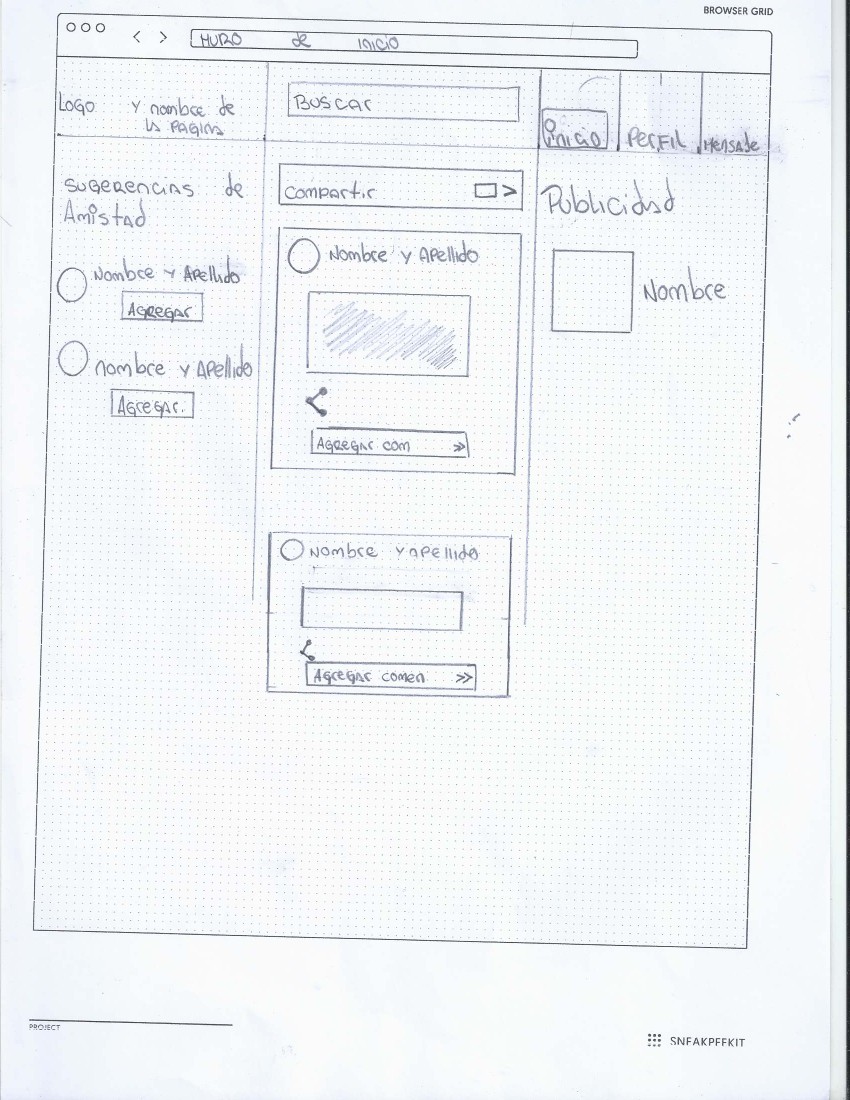 BROWSER GRID
MURO de inicio
LOGO y nombre de
la PAGINA
BUSCAR
inicio
PERFIL
MENSAJE
SUGERENCIAS de
Amistad
Nombre y Apellido
AGREGAR
nombre y Apellido
AGREGAR.
Compartir
Nombre y Apellido
AGREGAR com
Nombre y apellido
AGREGAR comen
Publicidad
Nombre
PROJECT
SNEAKPEEKIT